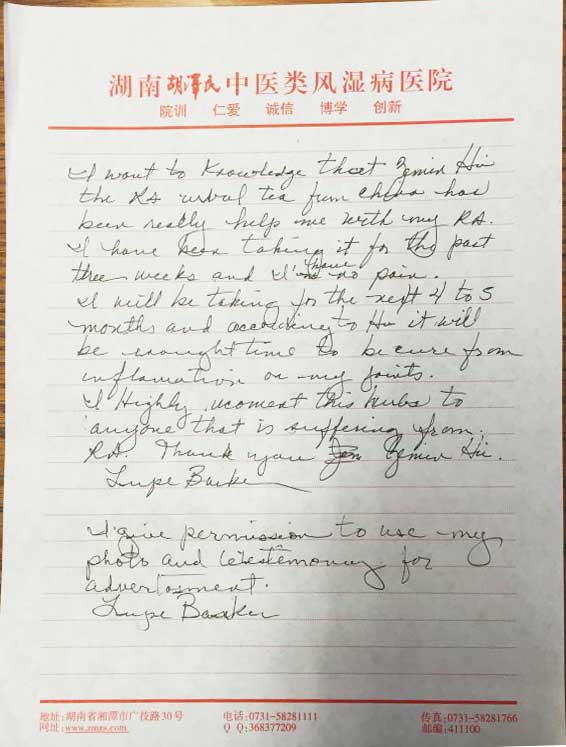 湖南胡泽民中医类风湿病医院
院训 仁爱 诚信 博学 创新
I want to Knowledge that Zemin Hu
the RA urbul tea from China has
been really help me with my RA.
I have been taking it for the past
three weeks and I have no pain.
I will be taking for the next 4 to 5
months and according to Hu it will
be enought time to be cure from
inflamation on my joints.
I Highly recoment this hurbs to
anyone that is suffering from
RA. Thank you Zemin Hu.
Lupe Barker
I give permission to use my
photo and testemony for
advertosment.
Lupe Barker
地址:湖南省湘潭市广技路30号 电话:0731-58281111 传真:0731-58281766
网址:www.zmgs.com Q Q:368377209 邮编:411100